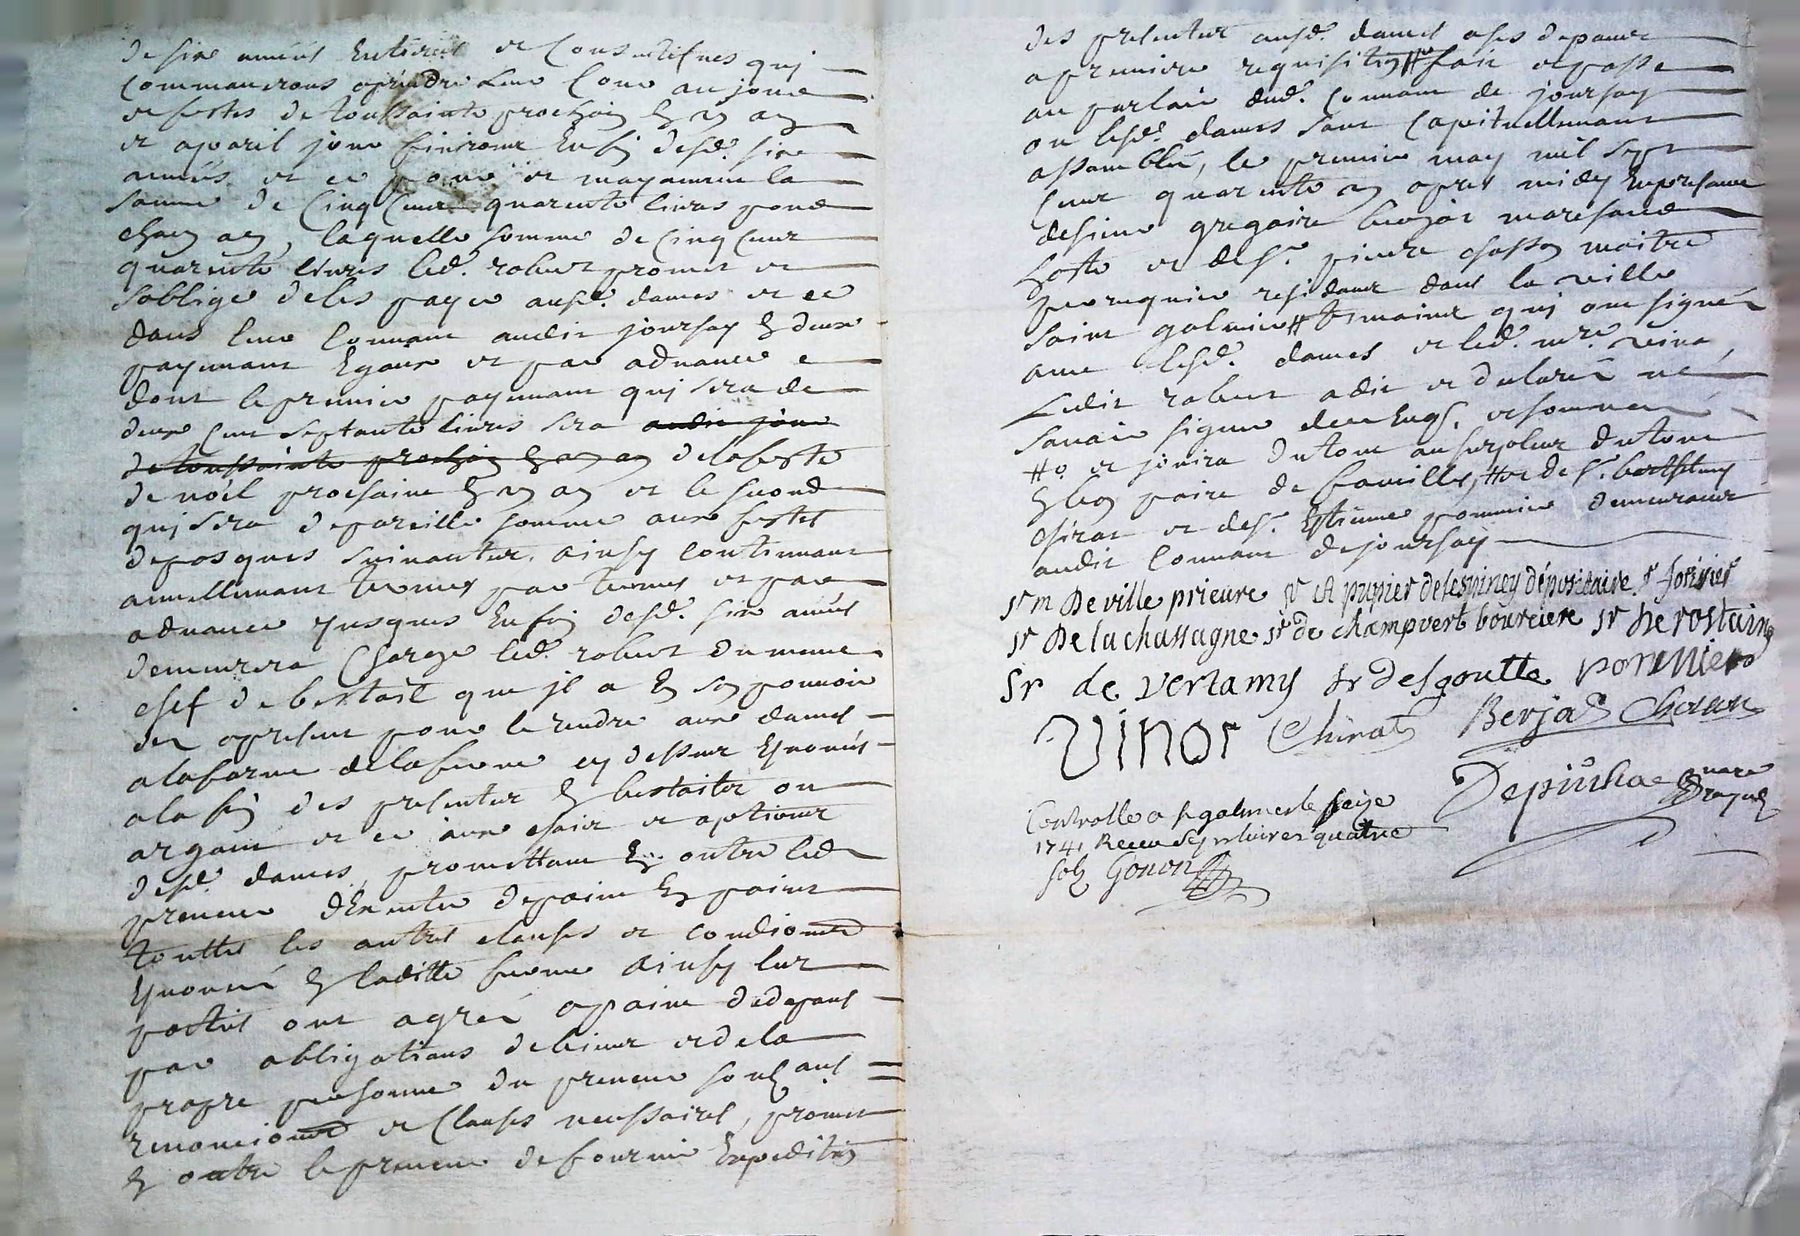 de six années entieres et consecutifves qui
commanceront a prendre leur cour au jour
et festes de toussainte prochain En un an
et apareil jour finiront En fin desd. six
années et ce pour et moyennant la
somme de Cinq Cent quarente livres pour
chacun an, laquelle somme de Cinq Cent
quarente livres led. robert promet et
soblige de les payer ausd. dames et ce
dans leur Convant audit joursay En deux
payemant Egaux et par advance
dont le premier payemant qui sera de
deux Cent septante livres sera audit jour
de toussainte prochain En un an de la feste
de noël prochaine En un an et le second
qui sera de pareille somme aux festes
de pasques suivantes, ainsy continuant
annuellemant termes par termes et par
advance jusques En fin desd. six années
demeurera Chargé led. robert du meme
chef de bestail que jl a En son pouvoir
des apresent pour le rendre aux dames
a la forme de la ferme cy dessus Enoncés
a la fin des presentes En bestaites ou
argant et ce aux choix et options
desd. dames, promettant En outre led.
preneur dExecuter de point En point
touttes les autres clauses et condions
Enoncés En laditte ferme Ainsy les
parties ont agréé a paine de depans
par obligations de biens et de la
propre personne du preneur soubs aus
renoncions et Clauses necessaires, promet
En outre le preneur de fournir Expedition
des presentes ausd. dames a ses depans
a premiere requisition # fait et passé
au parloir dud. Convant de joursay
ou lesd. dames sont Capituellemant
assamblés, le premier may mil sept
Cent quarente un apres midy En presance
de sieur gregoire berjat marchand
hoste et de sr. pierre chasson maitre
perruquier residant dans la ville
saint galmier # temoins qui ont signé
avec lesd. dames et led. mre. vinor
Ledit robert a dit et declaré ne
savoir signer de ce Enqs. et sommé
#o et jouira du tout au surplus du tout
En bon pere de famille, ## et de sr. barthelemy
chirat et de sr. Estienne pommier demeurant
audit Convant de joursay
sr m De ville prieure sr A punier de lespinoy dépositaire sr forisier
sr De la chassagne sr de champvert bourciere sr De rostaing
Sr de vertamy sr desgoutte pommier
Vinor Chirat Berjat Chasson
Depinha
Controllé a st galmier le seize
1741 Receu sept livres quatre
sols Gonon